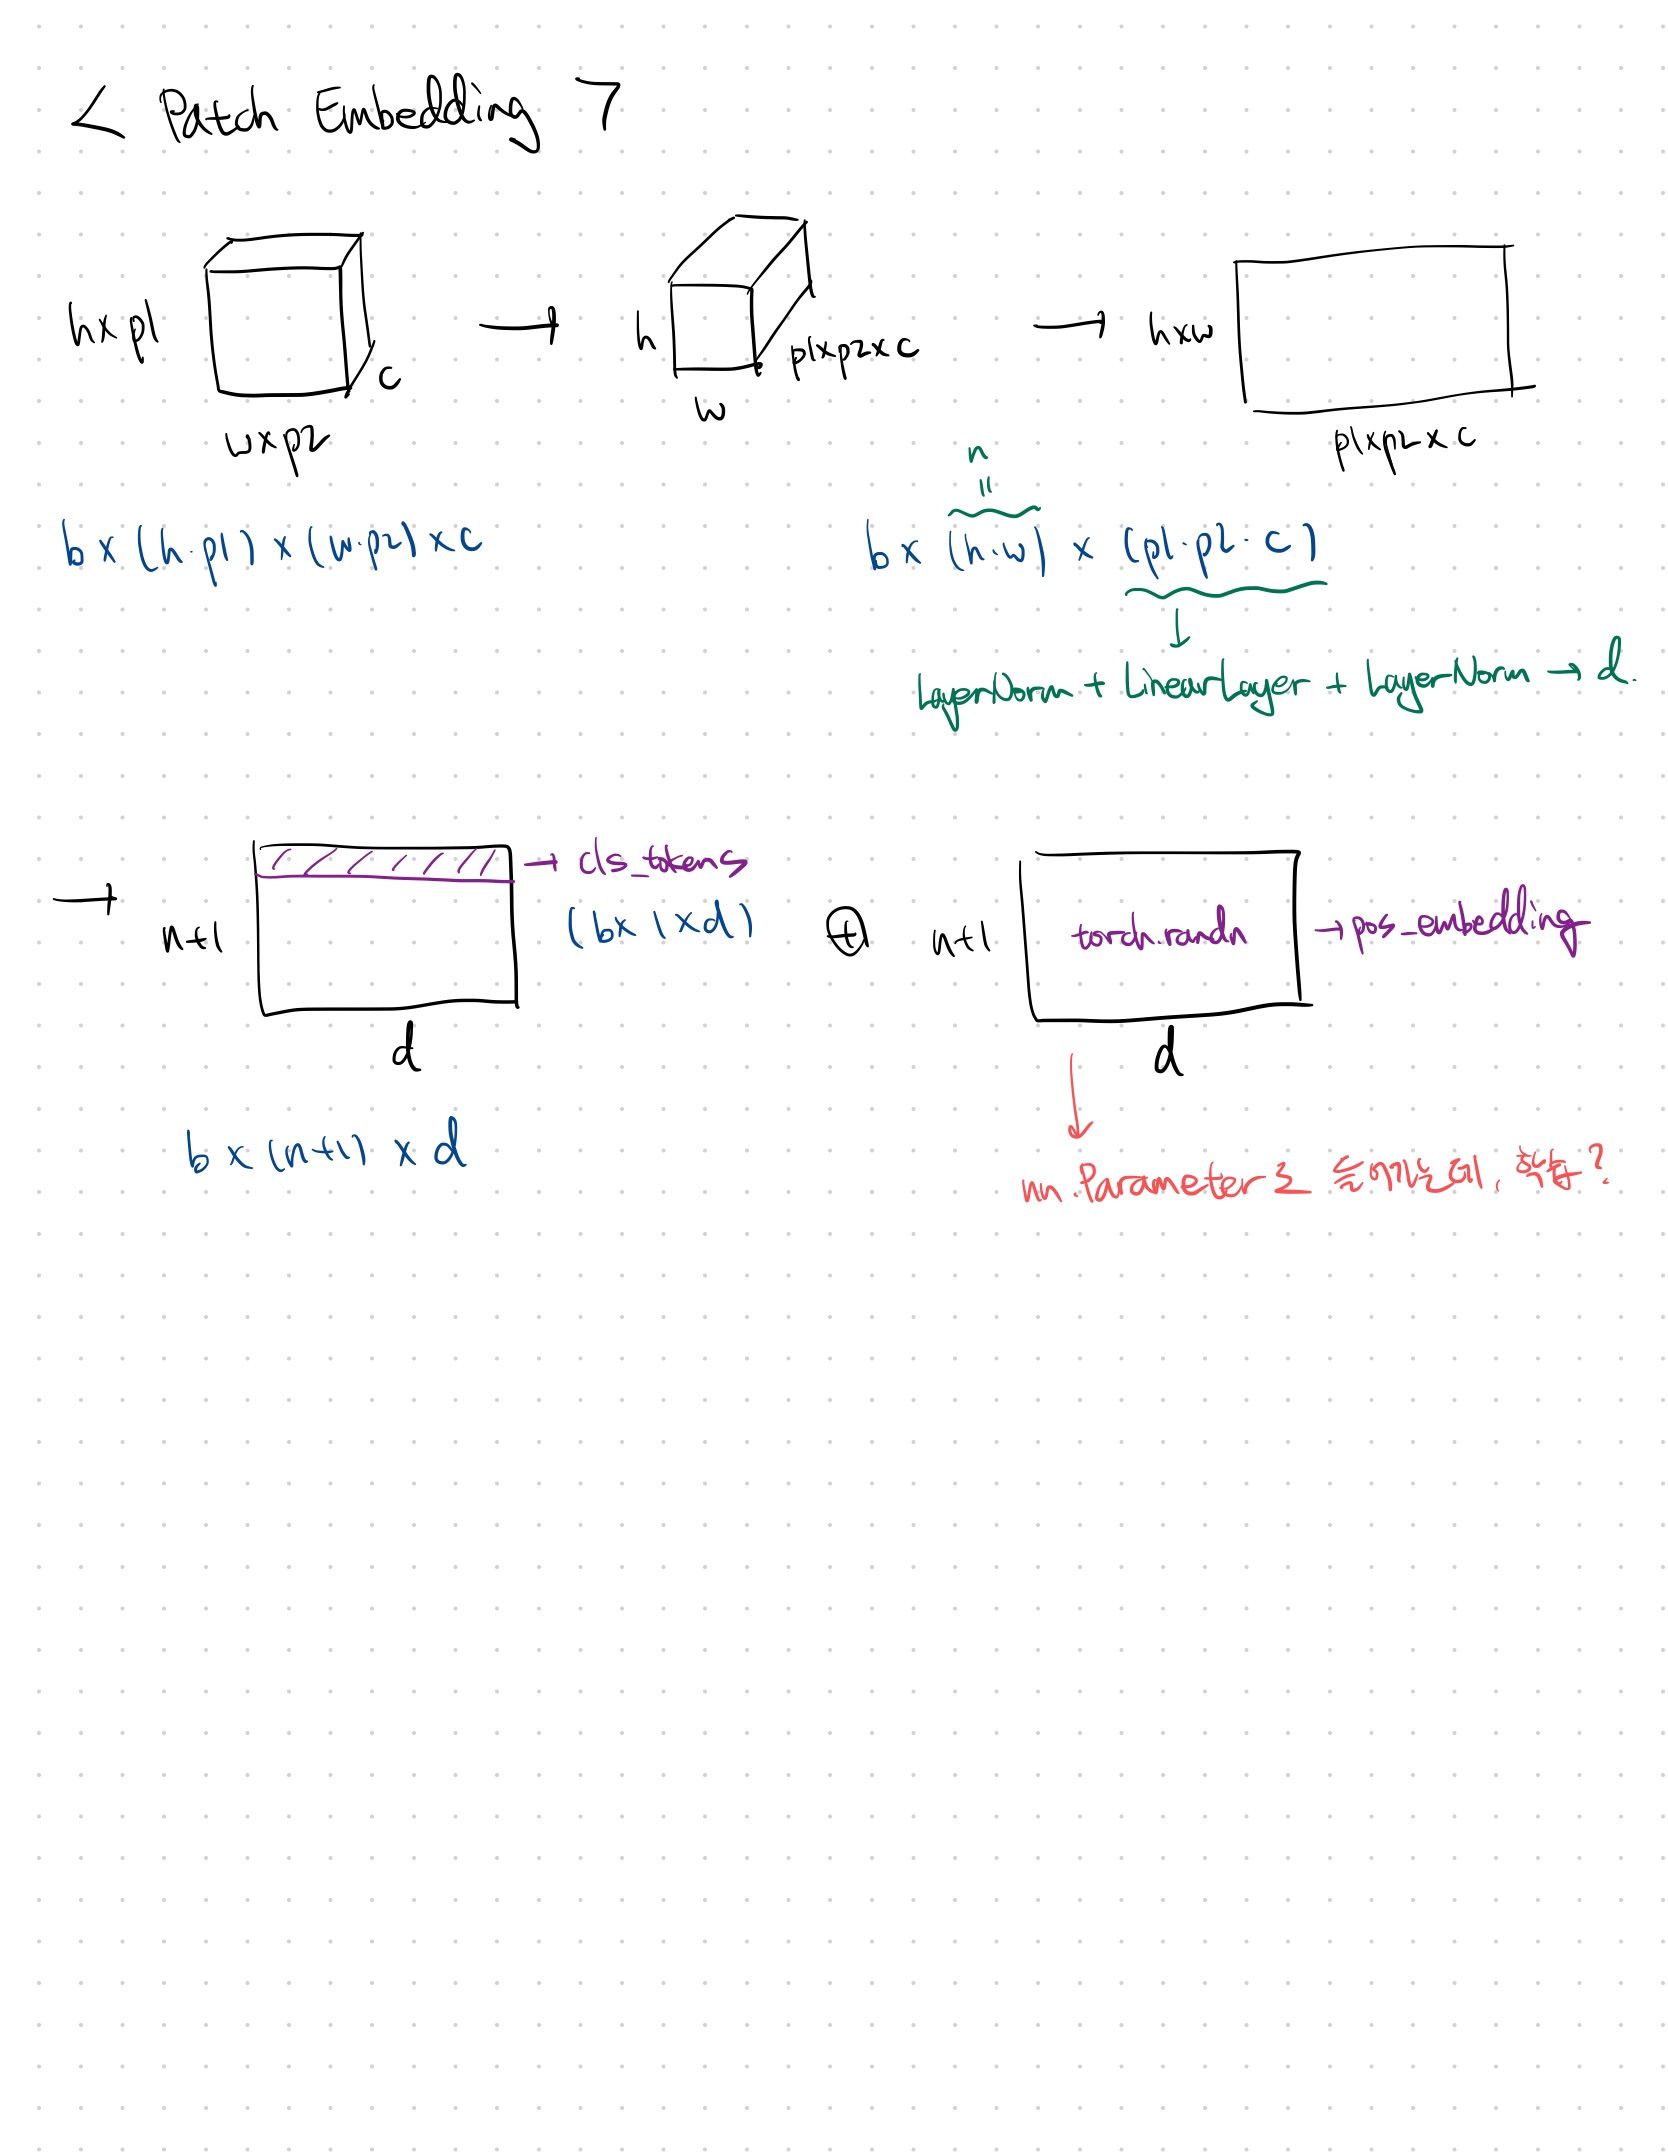 < Patch Embedding >
h×p1
c
w×p2
→
h
w
p1×p2×c
→
h×w
p1×p2×c
b×(h·p1)×(w·p2)×c
n
=
b×(h·w)×(p1·p2·c)
↓
LayerNorm + LinearLayer + LayerNorm → d.
→
n+1
→ cls_tokens
(b×1×d)
d
b×(n+1)×d
⊕
n+1
torch.randn
→ pos_embedding
d
↓
nn.Parameter로 들어가는데, 학습?